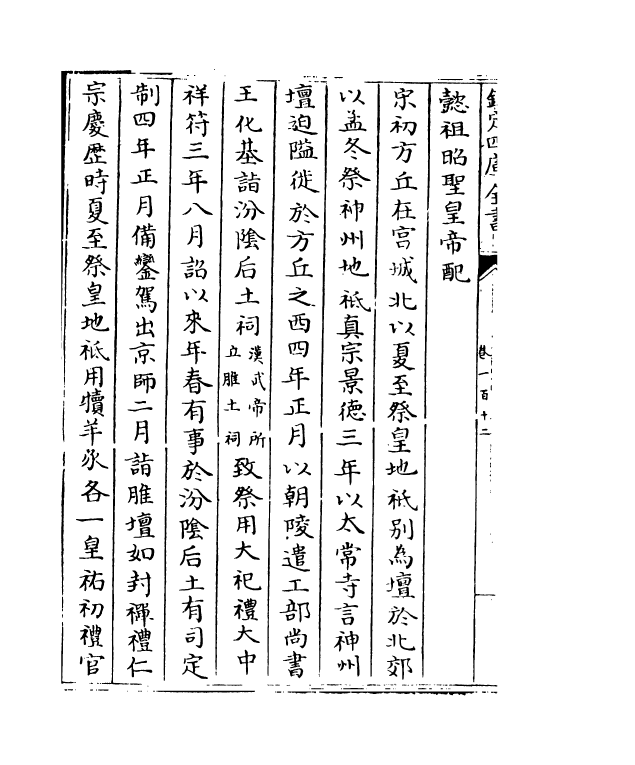 欽定四庫全書
卷一百十二
懿祖昭聖皇帝配
宋初方丘在宮城北以夏至祭皇地祇别為壇於北郊
以孟冬祭神州地祇真宗景德三年以太常寺言神州
壇迫隘徙於方丘之西四年正月以朝陵遣工部尚書
王化基詣汾隂后土祠漢武帝所立脽土祠致祭用大祀禮大中
祥符三年八月詔以來年春有事於汾隂后土有司定
制四年正月備鑾駕出京師二月詣脽壇如封禪禮仁
宗慶歴時夏至祭皇地祇用犢羊豕各一皇祐初禮官